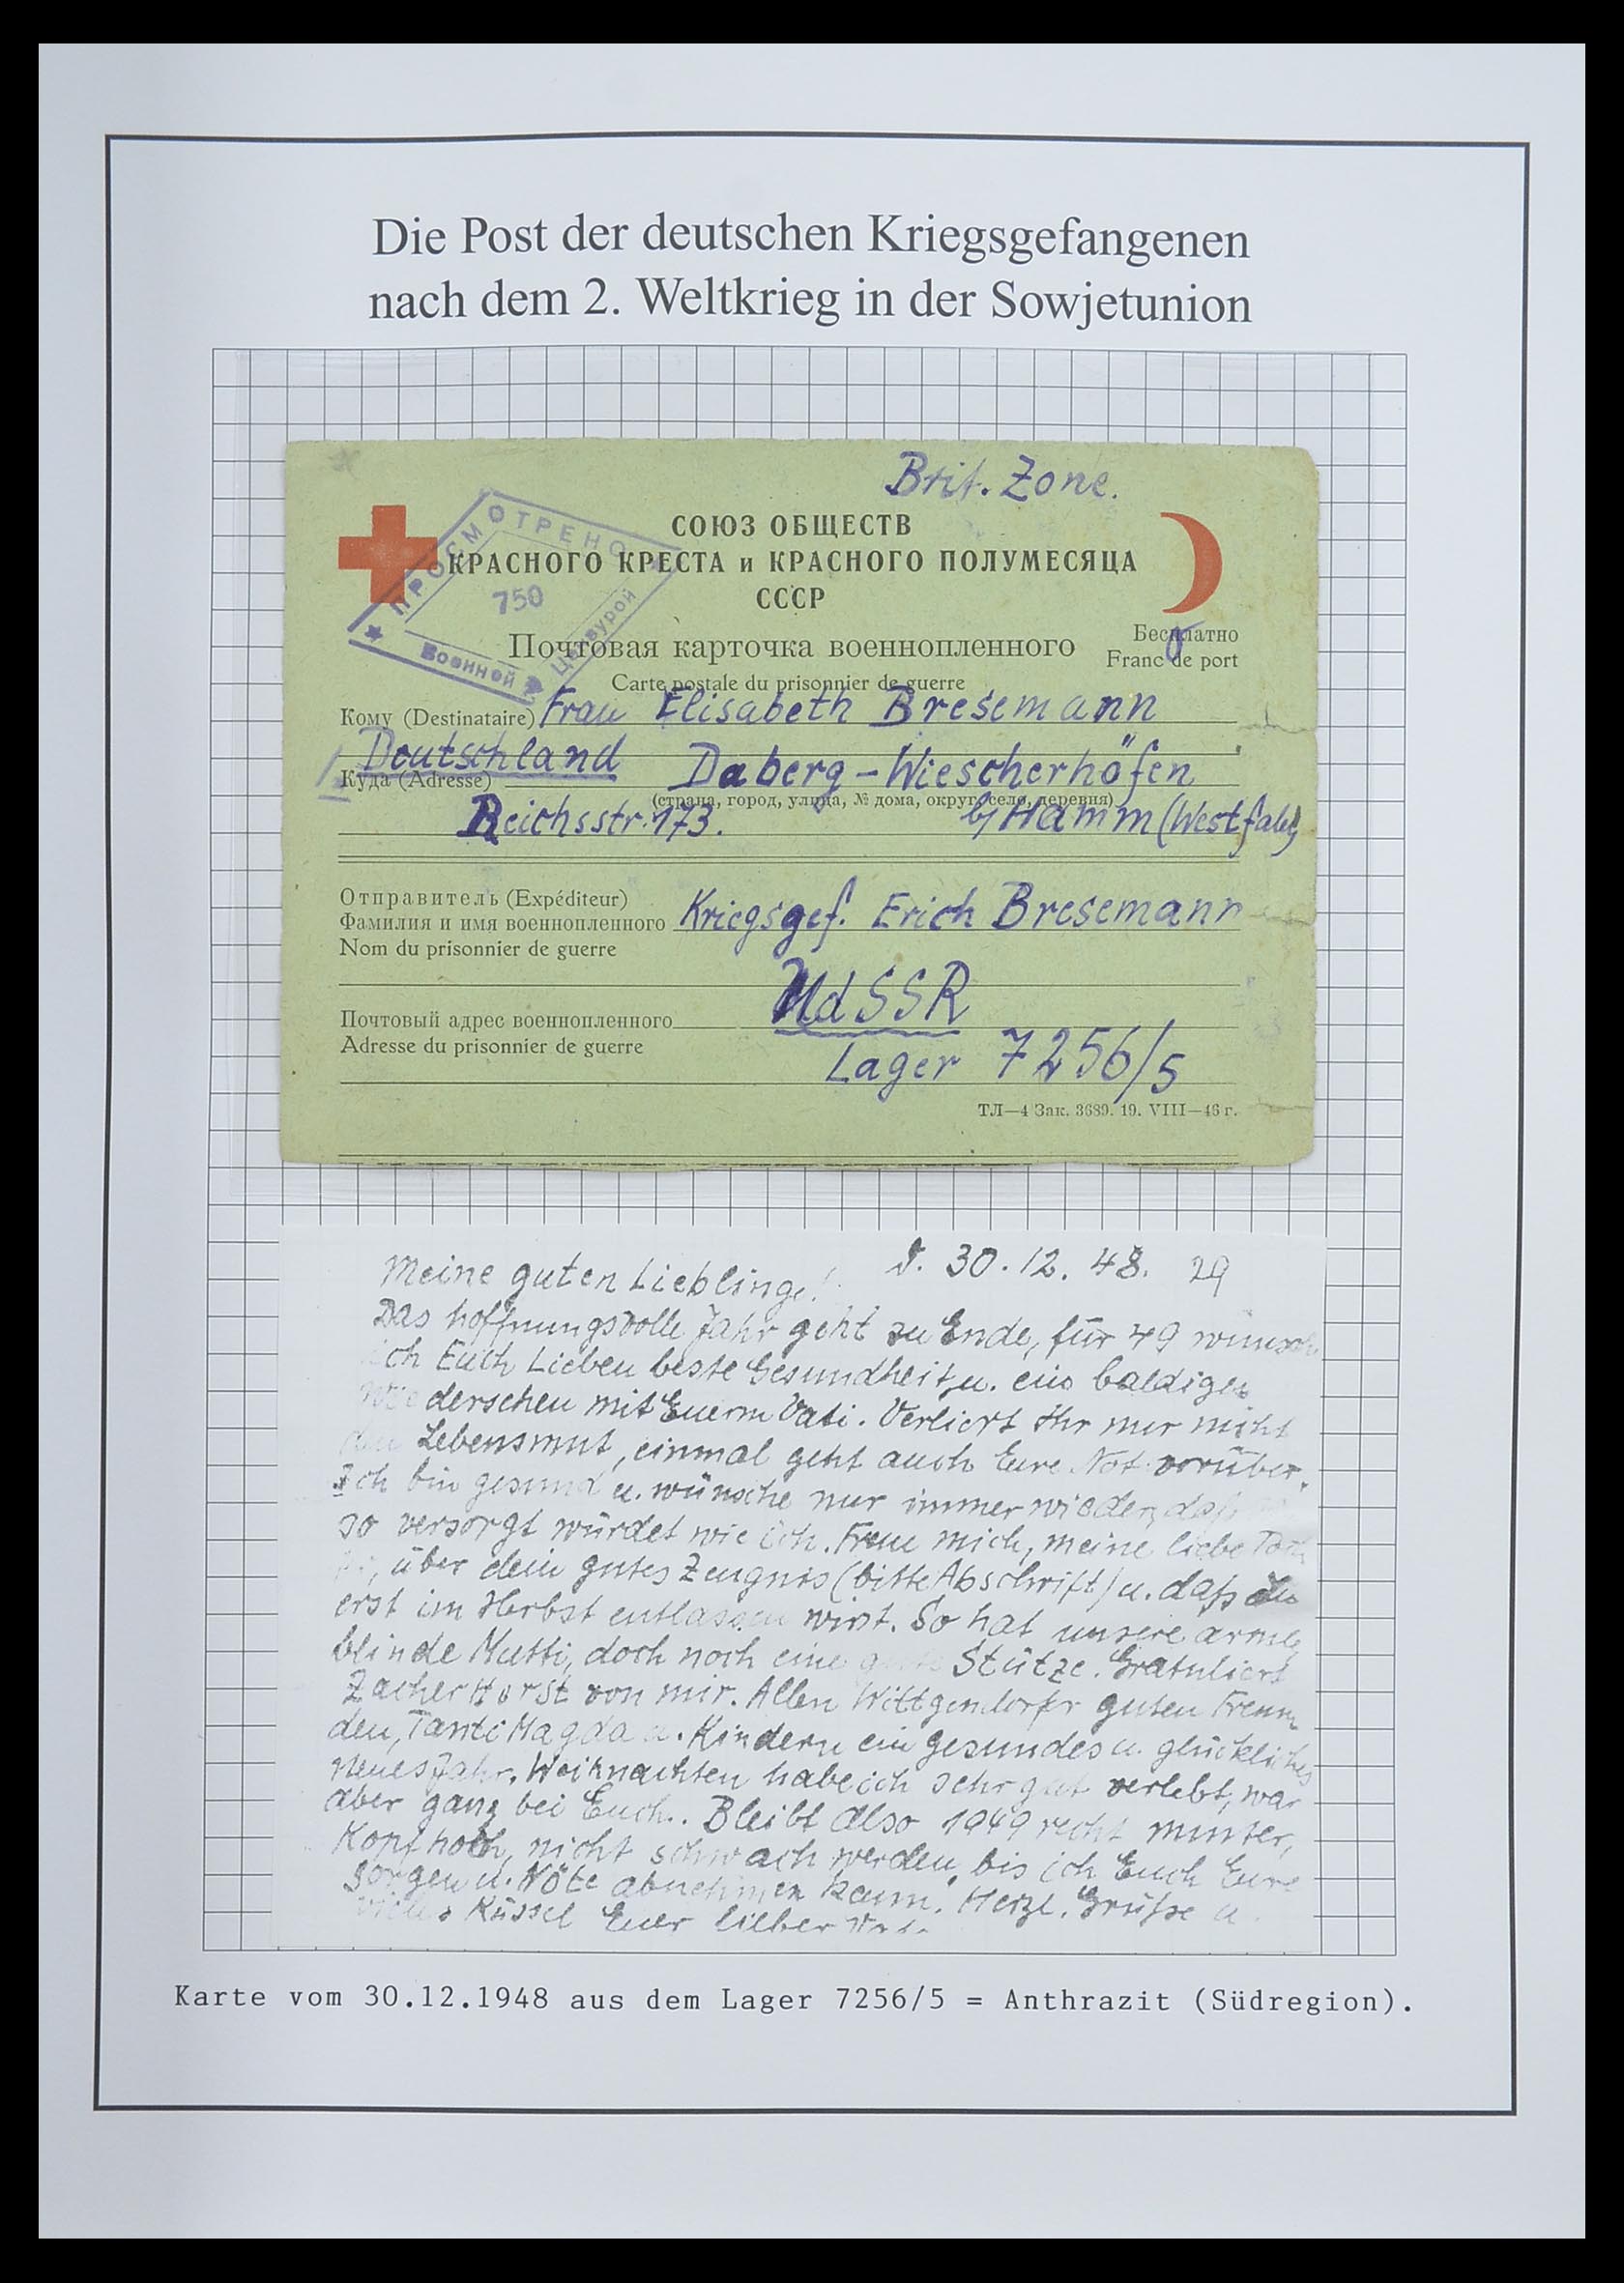 Die Post der deutschen Kriegsgefangenen
nach dem 2. Weltkrieg in der Sowjetunion
Brit. Zone.
СОЮЗ ОБЩЕСТВ
КРАСНОГО КРЕСТА и КРАСНОГО ПОЛУМЕСЯЦА
СССР
ПРОСМОТРЕНО
750
Военной Цензурой
Почтовая карточка военнопленного
Бесплатно
Franc de port
Carte postale du prisonnier de guerre
Кому (Destinataire) Frau Elisabeth Bresemann
Deutschland Daberg-Wiescherhöfen
Куда (Adresse)
(страна, город, улица, № дома, округ, село, деревня)
Reichsstr. 173. b/ Hamm (Westfalen)
Отправитель (Expéditeur)
Фамилия и имя военнопленного Kriegsgef. Erich Bresemann
Nom du prisonnier de guerre
UdSSR
Почтовый адрес военнопленного
Adresse du prisonnier de guerre
Lager 7256/5
ТЛ—4 Зак. 3689. 19. VIII—46 г.
Meine guten Lieblinge! d. 30.12.48. 29
Das hoffnungsvolle Jahr geht zu Ende, für 49 wünsche
ich Euch Lieben beste Gesundheit u. ein baldiges
Wiedersehen mit Euerm Vati. Verliert Ihr nur nicht
den Lebensmut, einmal geht auch Eure Not vorüber.
Ich bin gesund u. wünsche nur immer wieder, daß
so versorgt würdet wie ich. Freue mich, meine liebe
über dein gutes Zeugnis (bitte Abschrift) u. daß du
erst im Herbst entlassen wirst. So hat unsere arme,
blinde Mutti, doch noch eine gute Stütze. Gratuliert
Zacher Horst von mir. Allen Wittgendorfer guten Freun
den, Tante Magda u. Kindern ein gesundes u. glückliches
neues Jahr. Weihnachten habe ich sehr gut verlebt, war
aber ganz bei Euch. Bleibt also 1949 recht munter,
Kopf hoch, nicht schwach werden, bis ich Euch Eure
Sorgen u. Nöte abnehmen kann. Herzl. Grüße u.
viele Küssel Euer lieber Vati
Karte vom 30.12.1948 aus dem Lager 7256/5 = Anthrazit (Südregion).